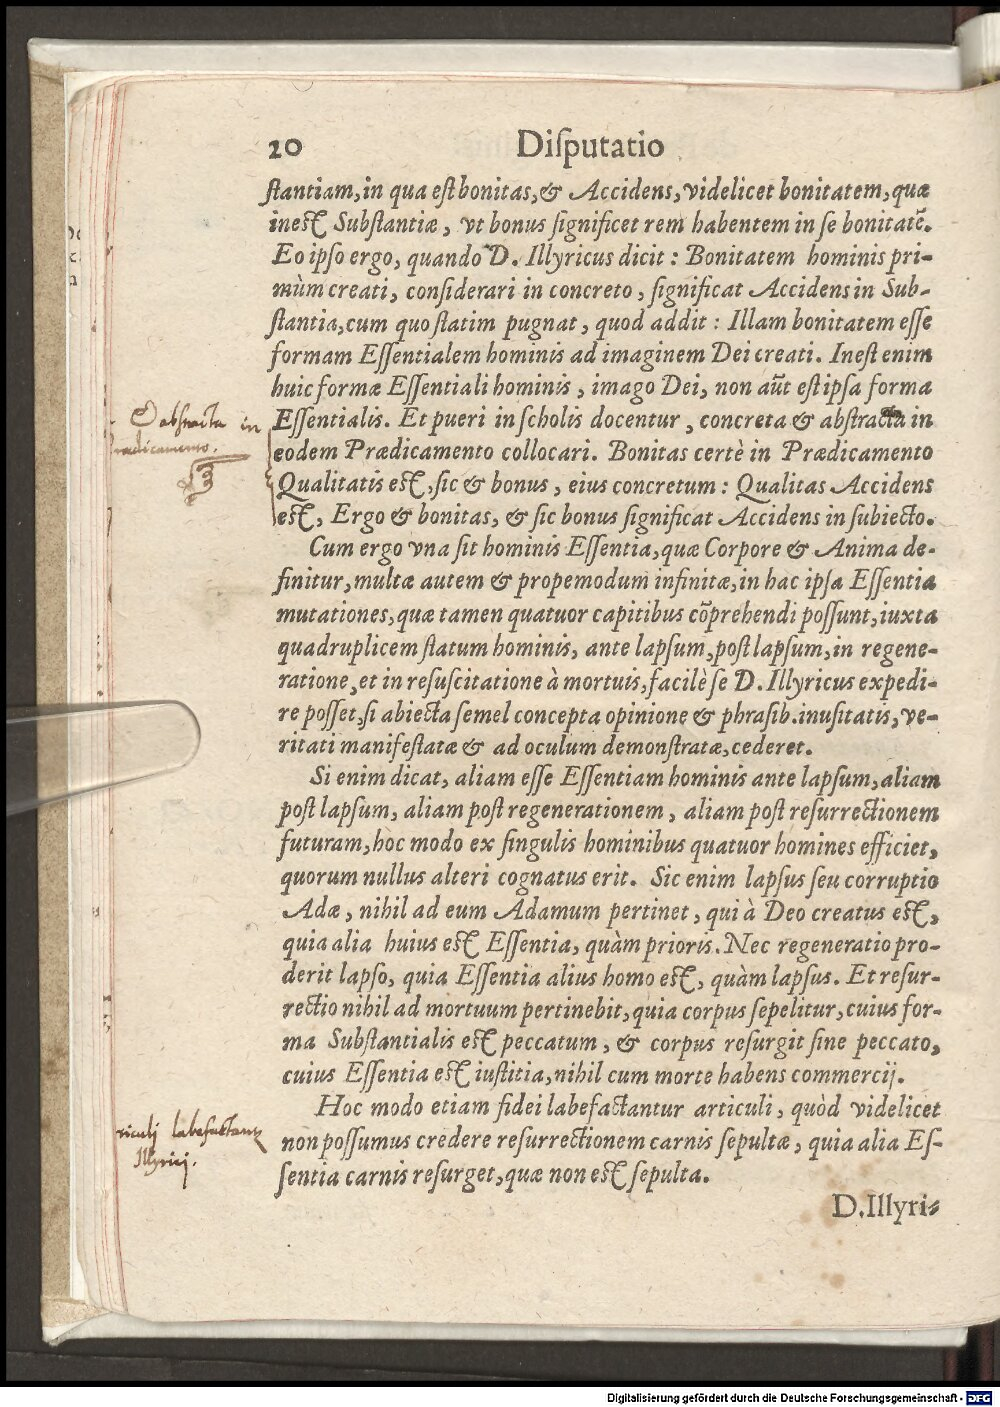 20 Diſputatio
ſtantiam, in qua eſt bonitas, & Accidens, videlicet bonitatem, quæ
ineſt Subſtantiæ, vt bonus ſignificet rem habentem in ſe bonitatẽ.
Eo ipſo ergo, quando D. Illyricus dicit: Bonitatem hominis pri-
mùm creati, conſiderari in concreto, ſignificat Accidens in Sub-
ſtantia, cum quo ſtatim pugnat, quod addit: Illam bonitatem eſſe
formam Eſſentialem hominis ad imaginem Dei creati. Ineſt enim
huic formæ Eſſentiali hominis, imago Dei, non aũt eſt ipſa forma
Eſſentialis. Et pueri in ſcholis docentur, concreta & abſtracta in
eodem Prædicamento collocari. Bonitas certè in Prædicamento
Qualitatis eſt, ſic & bonus, eius concretum: Qualitas Accidens
eſt, Ergo & bonitas, & ſic bonus ſignificat Accidens in ſubiecto.
abstracta in
radicamento.
Cum ergo vna ſit hominis Eſſentia, quæ Corpore & Anima de-
finitur, multæ autem & propemodum infinitæ, in hac ipſa Eſſentia
mutationes, quæ tamen quatuor capitibus cõprehendi poſſunt, iuxta
quadruplicem ſtatum hominis, ante lapſum, poſt lapſum, in regene-
ratione, et in reſuſcitatione à mortuis, facilè ſe D. Illyricus expedi-
re poſſet, ſi abiecta ſemel concepta opinione & phraſib. inuſitatis, ve-
ritati manifeſtatæ & ad oculum demonſtratæ, cederet.
Si enim dicat, aliam eſſe Eſſentiam hominis ante lapſum, aliam
poſt lapſum, aliam poſt regenerationem, aliam poſt reſurrectionem
futuram, hoc modo ex ſingulis hominibus quatuor homines efficiet,
quorum nullus alteri cognatus erit. Sic enim lapſus ſeu corruptio
Adæ, nihil ad eum Adamum pertinet, qui à Deo creatus eſt,
quia alia huius eſt Eſſentia, quàm prioris. Nec regeneratio pro-
derit lapſo, quia Eſſentia alius homo eſt, quàm lapſus. Et reſur-
rectio nihil ad mortuum pertinebit, quia corpus ſepelitur, cuius for-
ma Subſtantialis eſt peccatum, & corpus reſurgit ſine peccato,
cuius Eſſentia eſt iuſtitia, nihil cum morte habens commercij.
Hoc modo etiam fidei labefactantur articuli, quòd videlicet
non poſſumus credere reſurrectionem carnis ſepultæ, quia alia Eſ-
ſentia carnis reſurget, quæ non eſt ſepulta.
riculj labefactant
Illyricj.
D. Illyri-
Digitalisierung gefördert durch die Deutsche Forschungsgemeinschaft - DFG